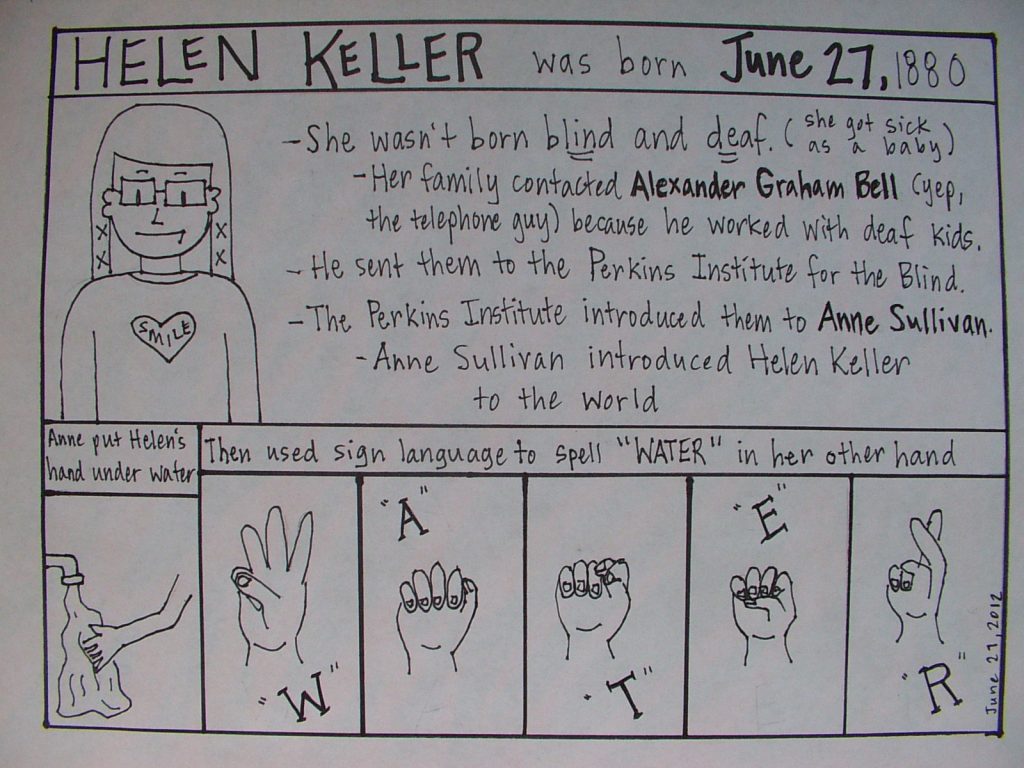 HELEN KELLER was born June 27, 1880
- She wasn't born blind and deaf. (she got sick
as a baby)
- Her family contacted Alexander Graham Bell (yep,
the telephone guy) because he worked with deaf kids.
- He sent them to the Perkins Institute for the Blind.
- The Perkins Institute introduced them to Anne Sullivan.
- Anne Sullivan introduced Helen Keller
to the world
SMILE
Anne put Helen's
hand under water
Then used sign language to spell "WATER" in her other hand
"W"
"A"
"T"
"E"
"R"
June 27, 2012